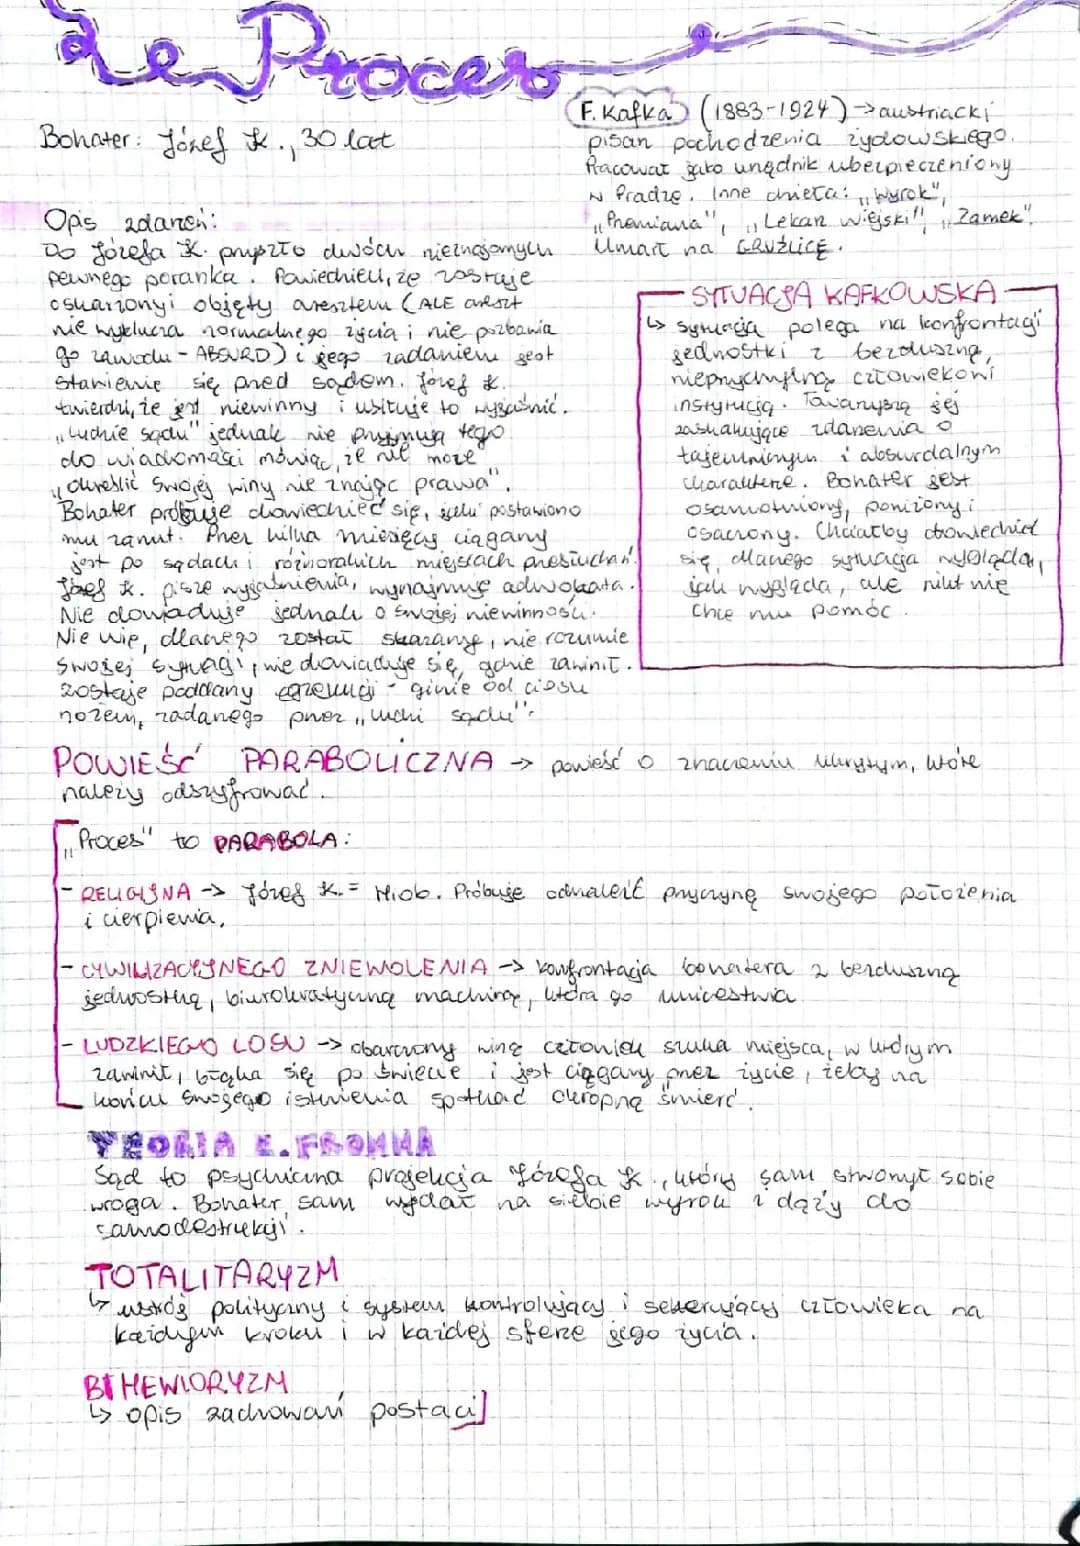 Le Proces
Bohater: Józef K., 30 lat
F. Kafka (1883-1924) → austriacki
pisarz pochodzenia żydowskiego.
Pracował jako urzędnik ubezpieczeniowy
w Pradze. Inne dzieła: „Wyrok",
„Przemiana", „Lekarz wiejski", „Zamek".
Umarł na GRUŹLICĘ.
Opis zdarzeń:
Do Józefa K. przyszło dwóch nieznajomych
pewnego poranka. Powiedzieli, że zostaje
oskarżony i objęty aresztem (ALE areszt
nie wyklucza normalnego życia i nie pozbawia
go zawodu - ABSURD) i jego zadaniem jest
stawienie się przed sądem. Józef K.
twierdzi, że jest niewinny i usiłuje to wyjaśnić.
„Ludzie sądu" jednak nie przyjmują tego
do wiadomości mówiąc, że nie może
„określić swojej winy nie znając prawa".
Bohater próbuje dowiedzieć się, jaki postawiono
mu zarzut. Przez kilka miesięcy ciągany
jest po sądach i różnorakich miejscach przesłuchań.
Józef K. pisze wyjaśnienia, wynajmuje adwokata.
Nie dowiaduje jednak o swojej niewinności.
Nie wie, dlaczego został skazany, nie rozumie
swojej sytuacji, nie dowiaduje się, gdzie zawinił.
Zostaje poddany egzekucji - ginie od ciosu
nożem, zadanego przez „ludzi sądu".
SYTUACJA KAFKOWSKA
↳ sytuacja polega na konfrontacji
jednostki z bezduszną,
nieprzychylną człowiekowi
instytucją. Towarzyszą jej
zaskakujące zdarzenia o
tajemniczym i absurdalnym
charakterze. Bohater jest
osamotniony, poniżony i
osaczony. Chciałby dowiedzieć
się, dlaczego sytuacja wygląda,
jak wygląda, ale nikt nie
chce mu pomóc.
POWIEŚĆ PARABOLICZNA → powieść o znaczeniu ukrytym, które
należy odszyfrować.
„Proces" to PARABOLA:
- RELIGIJNA → Józef K. = Hiob. Próbuje odnaleźć przyczynę swojego położenia
i cierpienia.
- CYWILIZACYJNEGO ZNIEWOLENIA → konfrontacja bohatera z bezduszną
jednostką, biurokratyczną machiną, która go unicestwia
- LUDZKIEGO LOSU → obarczony winą człowiek szuka miejsca, w którym
zawinił, błąka się po świecie i jest ciągany przez życie, żeby na
końcu swojego istnienia spotkać okropną śmierć.
TEORIA E. FROMMA
Sąd to psychiczna projekcja Józefa K., który sam stworzył sobie
wroga. Bohater sam wydał na siebie wyrok i dąży do
samodestrukcji.
TOTALITARYZM
↳ ustrój polityczny i system kontrolujący i sekerujący człowieka na
każdym kroku i w każdej sferze jego życia.
BEHEWIORYZM
↳ opis zachowań postaci]